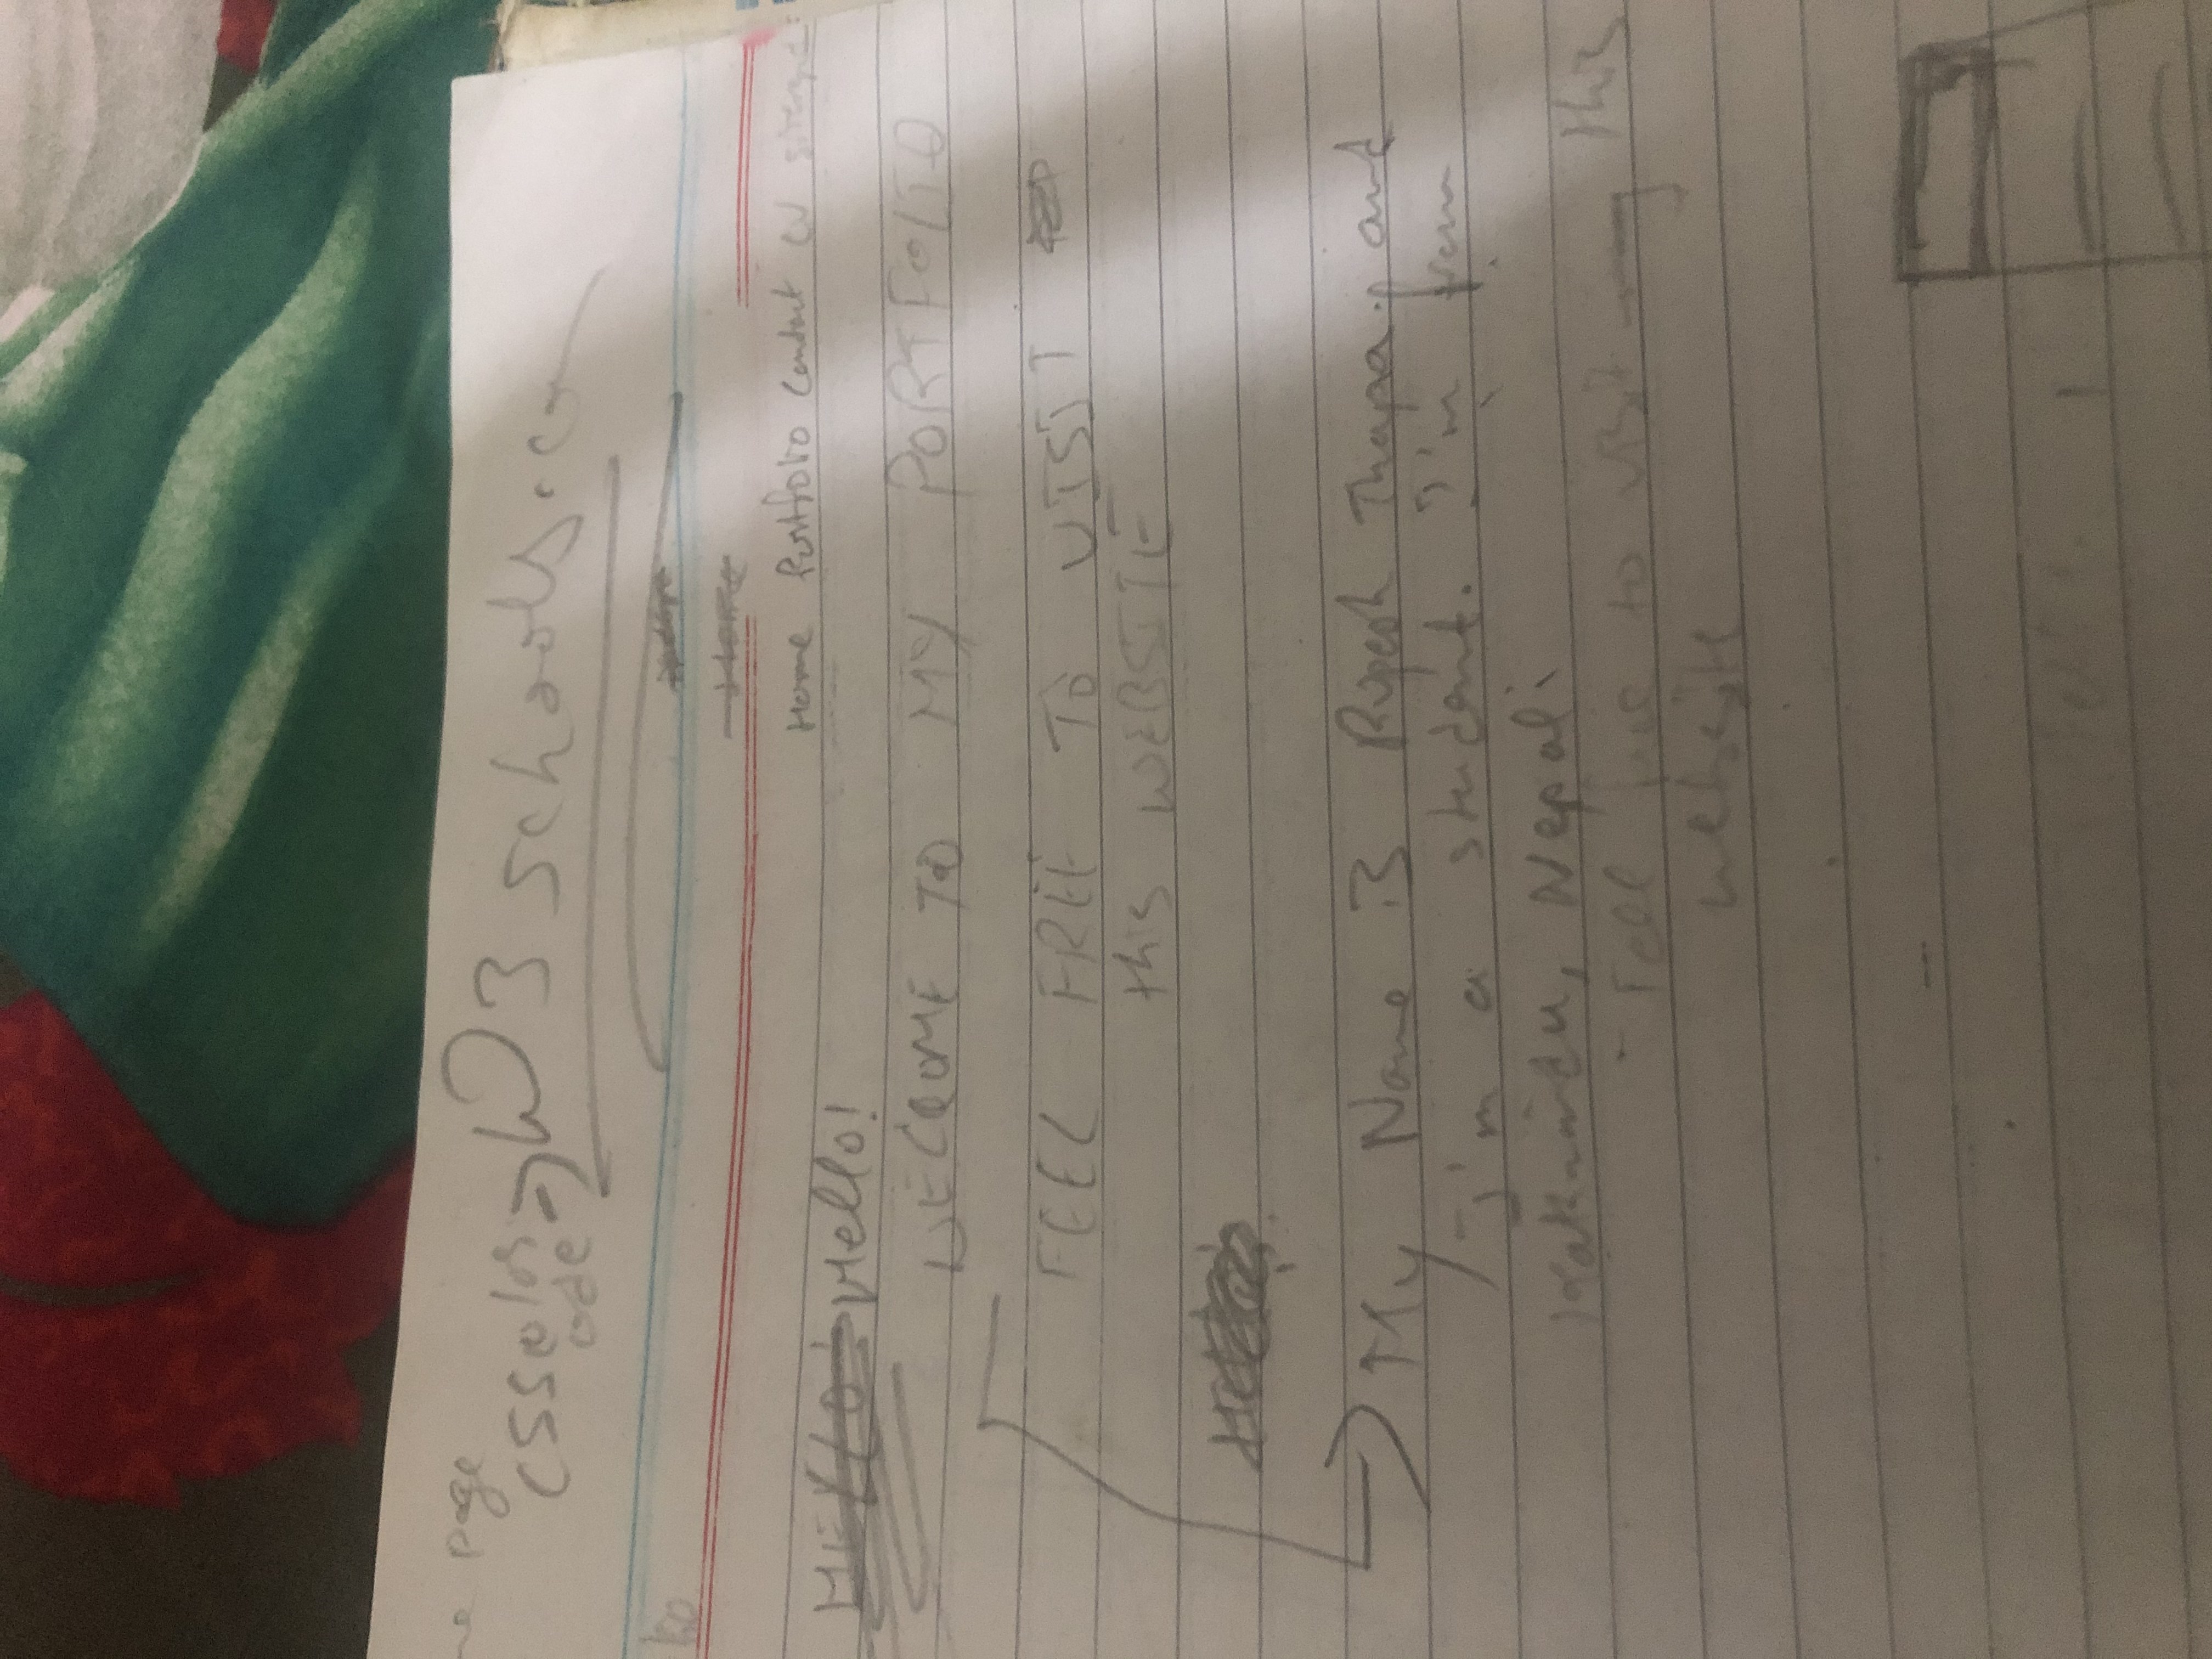 page
CSS color code => W3schools.com
Ko
Home
Home Portfolio Contact CV
HELLO! Hello!
WELCOME TO MY PORTFOLIO
FEEL FREE TO VISIT
this WEBSITE
My Name is Rupesh Thapa. and
I'm a student. I'm from
Nepal
Feel free to visit my this
website